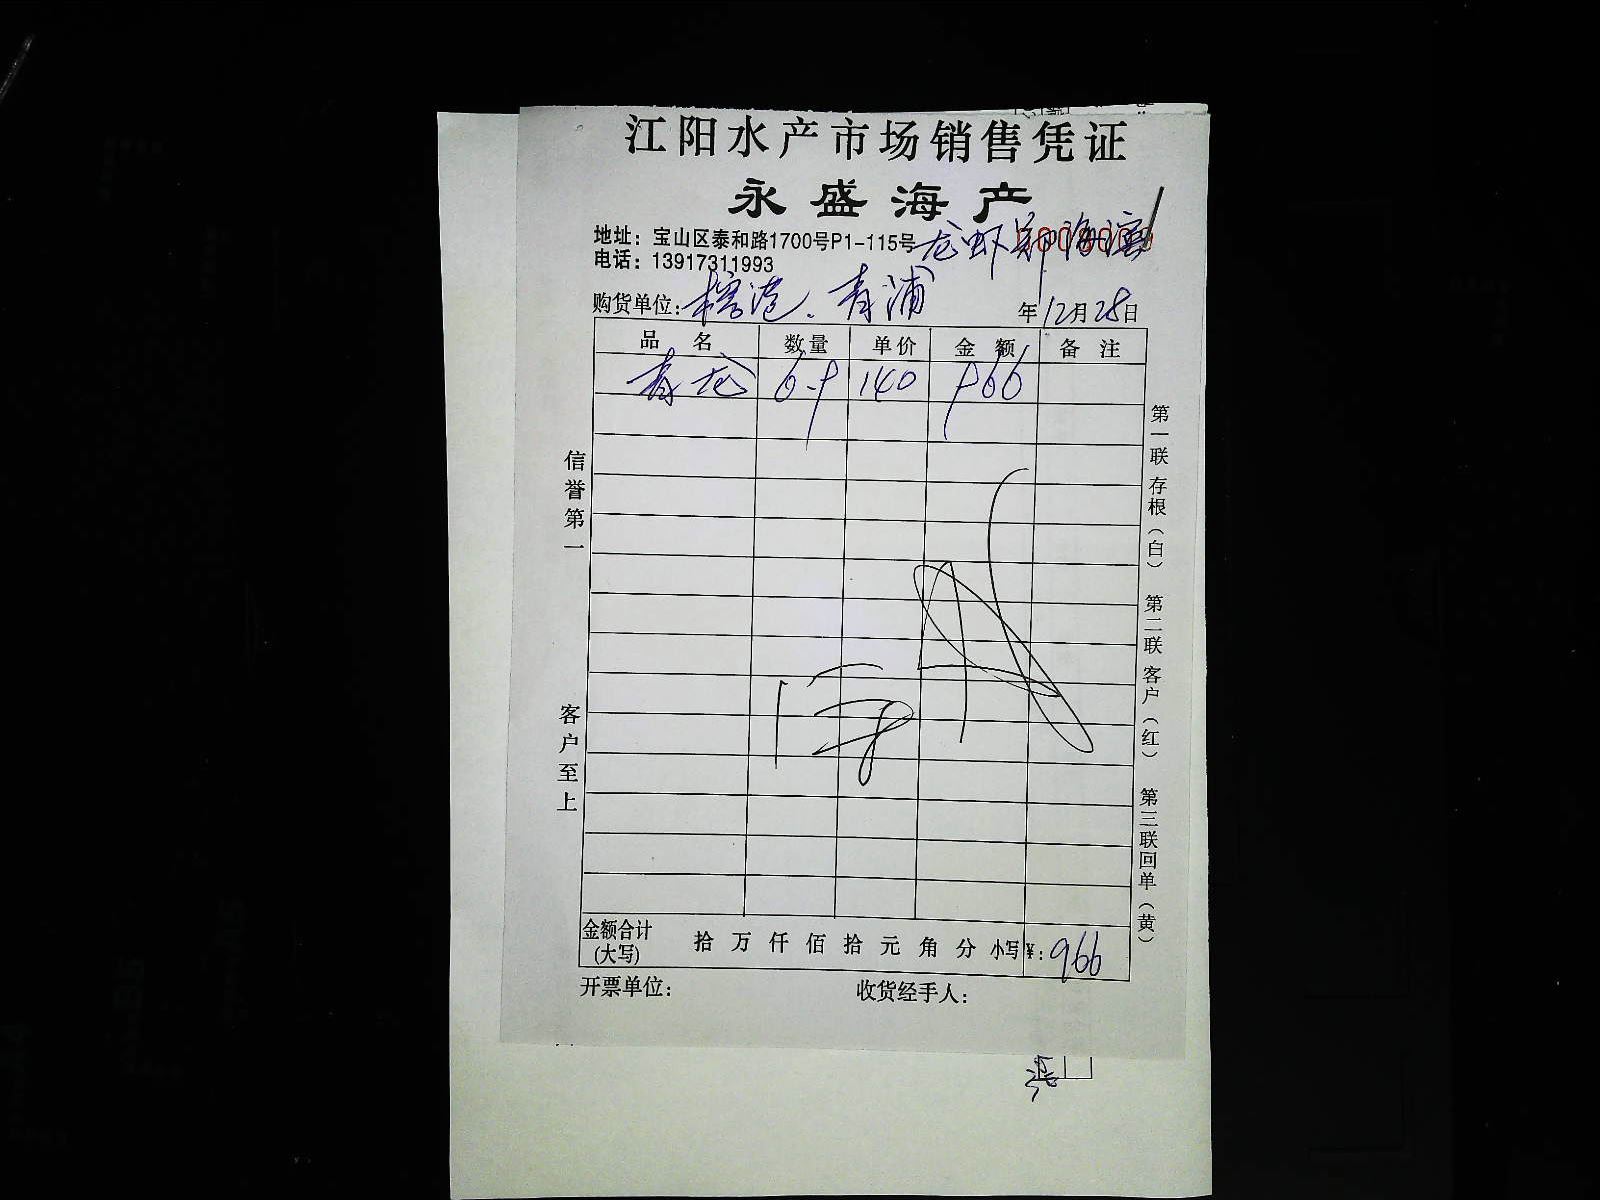 江阳水产市场销售凭证
永盛海产
地址：宝山区泰和路1700号P1-115号 龙虾
电话：13917311993
购货单位：榕港．青浦 年12月28日
品名 数量 单价 金额 备注
青龙 6.9 140 966
信誉第一
客户至上
第一联存根（白） 第二联客户（红） 第三联回单（黄）
金额合计(大写) 拾 万 仟 佰 拾 元 角 分 小写¥：966
开票单位： 收货经手人：